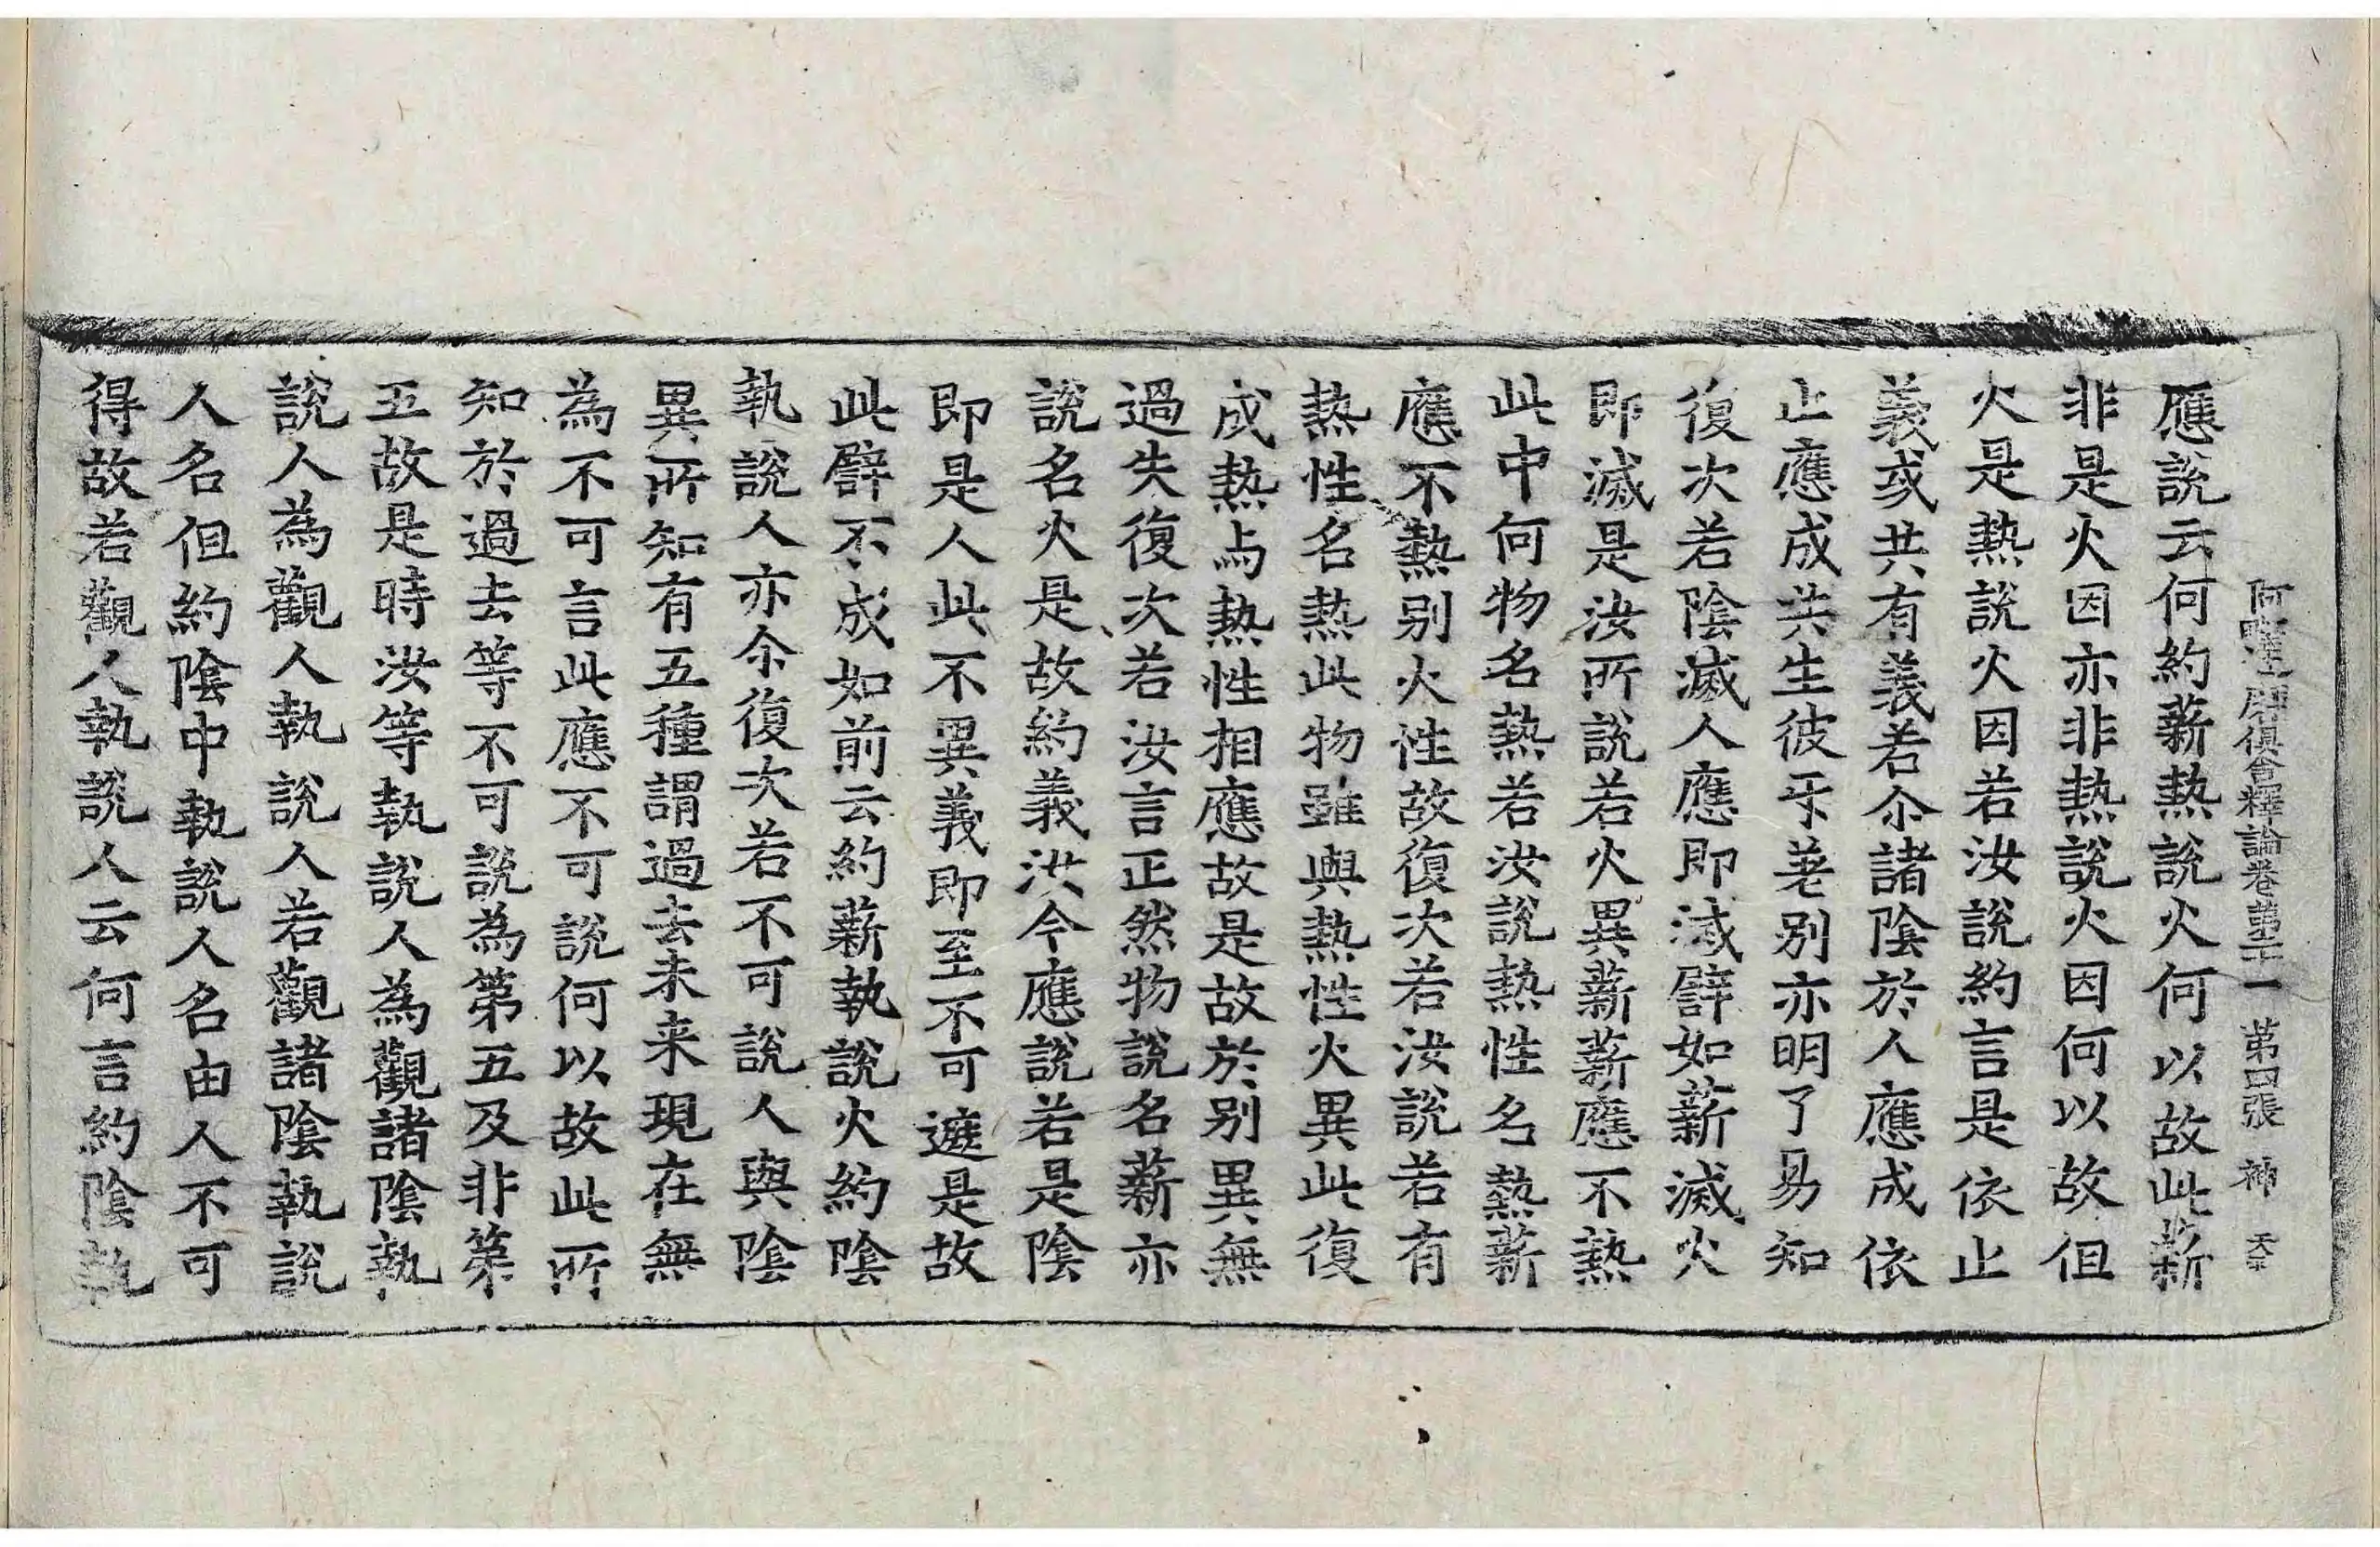 阿毗達磨俱舍釋論卷第二十一　第四張　神　天
應說云何約薪熱說火何以故此薪
非是火因亦非熱說火因何以故但
火是熱說火因若汝說約言是依止
義或共有義若尒諸陰於人應成依
止應成共生彼乐差別亦明了易知
復次若陰滅人應即滅譬如薪滅火
即滅是汝所說若火異薪薪應不熱
此中何物名熱若汝說熱性名熱薪
應不熱別火性故復次若汝說若有
熱性名熱此物雖與熱性火異此復
成熱与熱性相應故是故於別異無
過失復次若汝言正然物說名薪亦
說名火是故約義汝今應說若是陰
即是人此不異義即至不可遮是故
此譬不成如前云約薪執說火約陰
執說人亦尒復次若不可說人與陰
異所知有五種謂過去未来現在無
為不可言此應不可說何以故此所
知於過去等不可說為第五及非第
五故是時汝等執說人為觀諸陰執
說人為觀人執說人若觀諸陰執說
人名但約陰中執說人名由人不可
得故若觀人執說人云何言約陰執